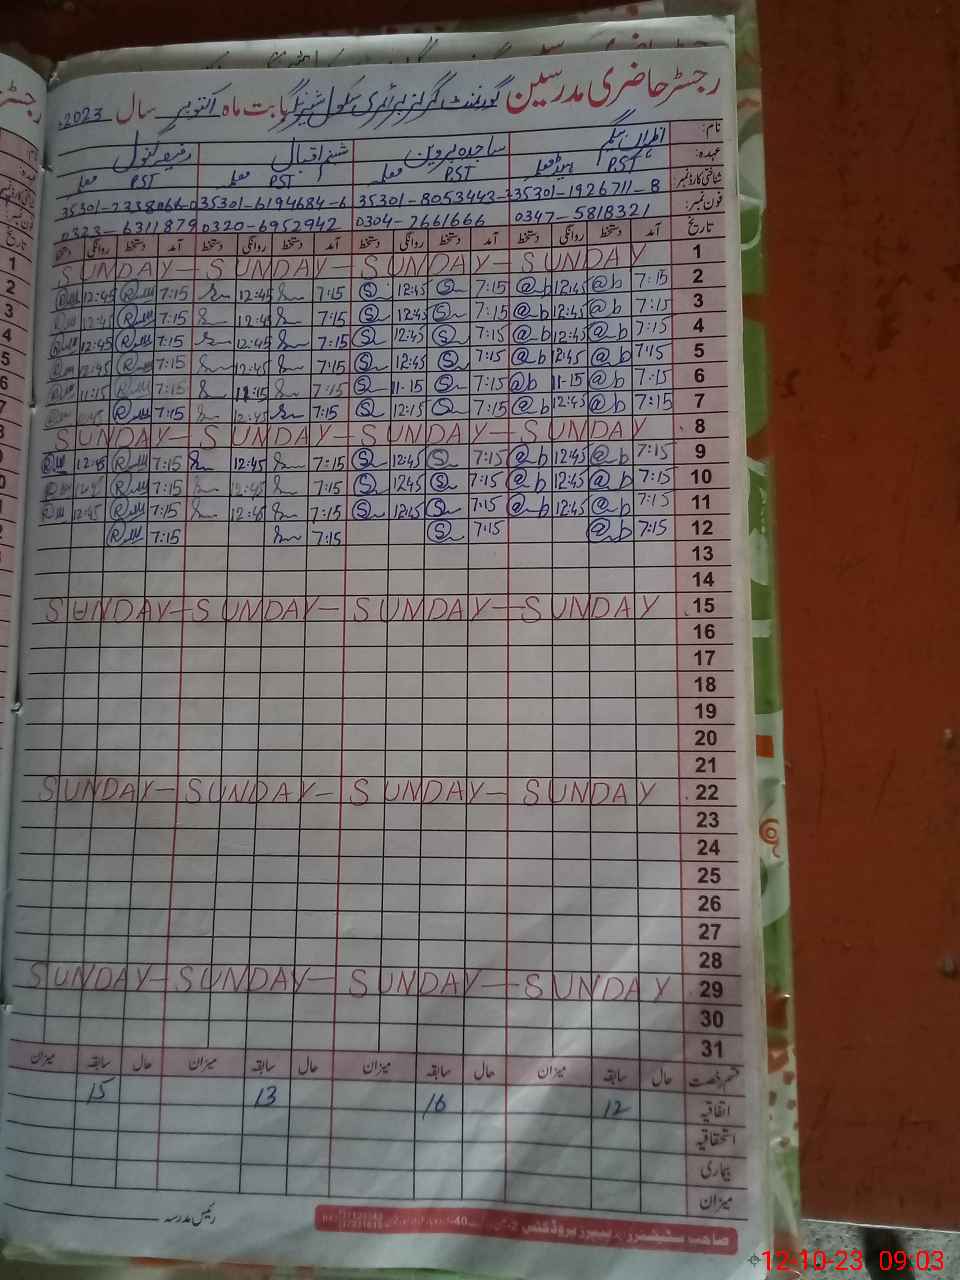 رجسٹر حاضری مدرسین گورنمنٹ گرلز پرائمری سکول بابت ماہ اکتوبر سال 2023ء
نام:
ساجدہ پروین
شبنم اقبال
عہدہ: PST ہیڈ معلمہ PST معلمہ PST معلمہ PST معلمہ
شناختی کارڈ نمبر: 35301-1926711-8 35301-8053443- 35301-6194684-6 35301-7338066-0
فون نمبر: 0347-5818321 0304-7661666 0320-6952942 0323-6311879
تاریخ آمد دستخط روانگی دستخط آمد دستخط روانگی دستخط آمد دستخط روانگی دستخط آمد دستخط روانگی دستخط
1 SUNDAY-SUNDAY-SUNDAY-SUNDAY
2 7:15 @b 12:45 @b 7:15 S 12:45 S 7:15 12:45 7:15 12:45
3 7:15 @b 12:45 @b 7:15 S 12:45 S 7:15 12:45 7:15 12:45
4 7:15 @b 12:45 @b 7:15 S 12:45 S 7:15 12:45 7:15 12:45
5 7:15 @b 12:45 @b 7:15 S 12:45 S 7:15 12:45 7:15 12:45
6 7:15 @b 11-15 @b 7:15 S 11-15 S 7:15 11:15 7:15 11:15
7 7:15 @b 12:45 @b 7:15 S 12:15 S 7:15 12:45 7:15 12:45
8 SUNDAY-SUNDAY-SUNDAY-SUNDAY
9 7:15 @b 12:45 @b 7:15 S 12:45 S 7:15 12:45 7:15 12:45
10 7:15 @b 12:45 @b 7:15 S 12:45 S 7:15 12:45 7:15
11 7:15 @b 12:45 @b 7:15 S 12:45 S 7:15 12:45 7:15 12:45
12 7:15 @b 7:15 S 7:15 7:15
13
14
15 SUNDAY-SUNDAY-SUNDAY-SUNDAY
16
17
18
19
20
21
22 SUNDAY-SUNDAY-SUNDAY-SUNDAY
23
24
25
26
27
28
29 SUNDAY-SUNDAY-SUNDAY-SUNDAY
30
31
قسم رخصت حال سابقہ میزان حال سابقہ میزان حال سابقہ میزان حال سابقہ میزان
اتفاقیہ 12 16 13 15
استحقاقیہ
بیماری
میزان
رئیس مدرسہ
صاحب سٹیشنرز پیپرز پروڈکٹس
12-10-23 09:03